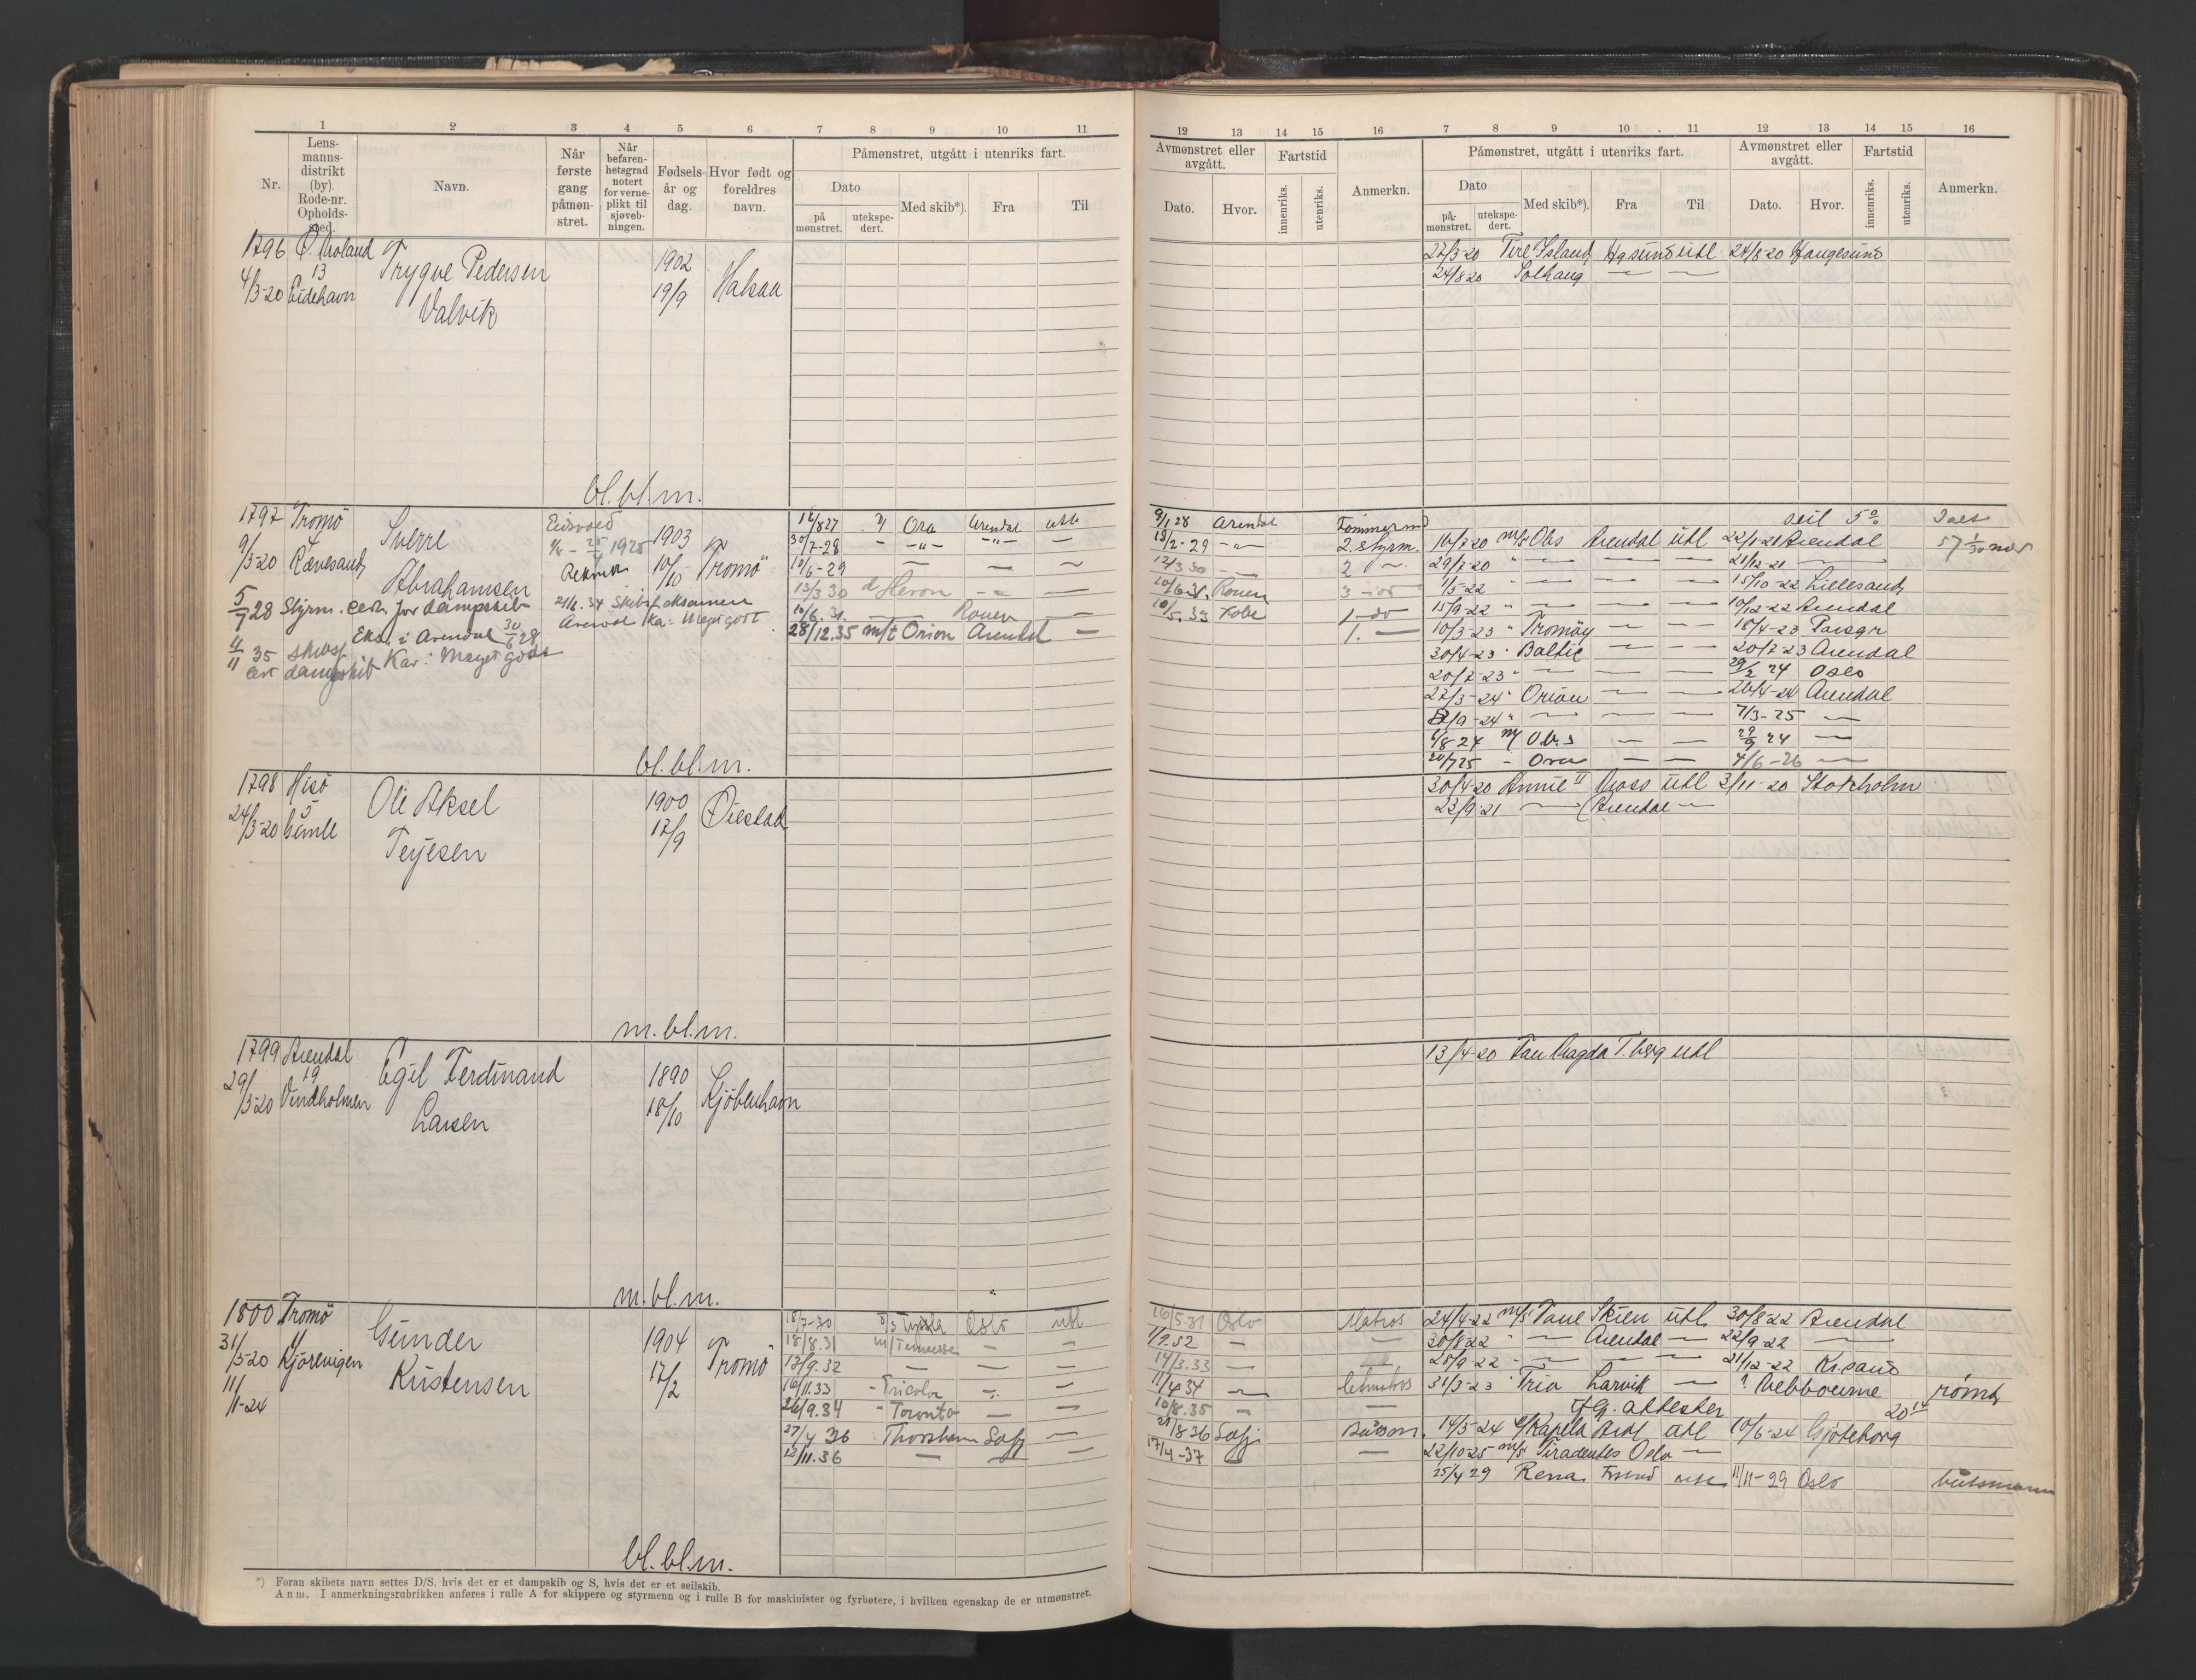 1 2 3 4 5 6 7 8 9 10 11
Nr.
Lens-
manns-
distrikt
(by).
Rode-nr.
Opholds-
sted.
Navn.
Når
første
gang
påmøn-
stret.
Når
befaren-
hetsgrad
notert
for verne-
plikt til
sjøveb-
ningen.
Fødsels-
år og
dag.
Hvor født og
foreldres
navn.
Påmønstret, utgått i utenriks fart.
Dato
på
mønstret.
utekspe-
dert.
Med skib*).
Fra
Til
1796 Ø. Moland
13
4/3-20 Eidehavn
Trygve Pedersen
Valvik
1902
19/9
Halsaa
bl.bl.m.
1797 Tromö
4
9/3-20 Rævesand
Sverre
Abrahamsen
Eidsvold
1925
1903
10/10
Tromö
5/7 28 Styrm. cert. for dampskib
Eks. i Arendal 30/6 28
4/11 35
cert dampskib Kar: Meget godt
21/6. 34 Skibsf. eksamen
Arendal Ka: Meget godt
16/8 27 Ora Arendal utl
30/7-28 - -"- -"- —
10/6-29 — — ~
13/3 30 d Heron -"- —
10/6.31. — Rouen —
28/12.35 m/t Orion Arendal —
bl.bl.m.
1798 Hisö
5
24/3-20 Gimle
Ole Aksel
Terjesen
1900
17/9
Øiestad
m.bl.m.
1799 Arendal
19
29/3-20 Vindholmen
Egil Ferdinand
Larsen
1890
18/10
Kjöbenhavn
m.bl.m.
1800 Tromö
4
31/3-20 Kjörevigen
11/11-24
Gunder
Kristensen
1904
17/2
Tromö
18/7-30 Oslo utl
18/8.31 m/Tennessee - -
13/9.32 — — -
16/11.33 - Tricolor -"- -
26/9.34 - Toronto — -
27/4 36 Thorshavn Safi —
12/11.36 — — —
bl.bl.m.
*) Foran skibets navn settes D/S, hvis det er et dampskib og S, hvis det er et seilskib.
Anm. I anmerkningsrubrikken anføres i rulle A for skippere og styrmenn og i rulle B for maskinister og fyrbøtere, i hvilken egenskap de er utmønstret.
12 13 14 15 16 7 8 9 10 11 12 13 14 15 16
Avmønstret eller
avgått.
Dato.
Hvor.
Fartstid
innenriks.
utenriks.
Anmerkn.
Påmønstret, utgått i utenriks fart.
Dato
på-
mønstret.
utekspe-
dert.
Med skib*).
Fra
Til
Avmønstret eller
avgått.
Dato.
Hvor.
Fartstid
innenriks.
utenriks.
Anmerkn.
22/3-20 Hgsund utl 24/8-20 Haugesund
24/8-20 Solhaug — —
9/1 28 Arendal Tømmerm
seil
13/2-29 -"- 2. styrm. 16/7-20 m/s Obs Arendal utl 22/1-21 Arendal
12/3 30 -"- 2 ~ 29/7-20 " — — — 21/12-21 —
10/6-31. Rouen 3 -do 1/5-22 " — — — 15/10-22 Lillesand
10/5.33 Kobe 1-do 15/9-22 " — — — 10/12-22 Arendal
1. — 10/3-23 " Tromöy — — 18/4-23 Porsgr
30/4-23 " Baltic — — 20/7-23 Arendal
20/7-23 " — — — 29/2 24 Oslo
27/3-24 " Orion — — 26/4-24 Arendal
/9-24 " — — — 7/3-25 —
/8 24 m/ Obs — — 29/9 24 —
20/7 25 - Ora — — 4/6-26 —
30/4-20 Annie II Moss utl 3/11-20 Stokholm
23/9-21 — Arendal —
13/4-20 Magda T.berg utl
16/5 31 Oslo Matros 24/4-22 m/s Skien utl 30/8-22 Arendal
1/9.32 — — 30/8 22 " — Arendal — 22/9-22 —
14/3.33 — 28/9-22 - — — — 21/12-22 Kr.sand
11/4 34 — 31/3-23 " Tria Larvik — ? Melbourne römt
10/8.35 - —
iflg. attester
21/8 36 Safi Båtsm. 14/5-24 Kapella Ardl utl 10/6-24 Gjöteborg
17/4-37 — — 22/10-25 m/s Tiradentes Oslo —
25/4 29 Rena 11/11-29 Oslo båtsmann